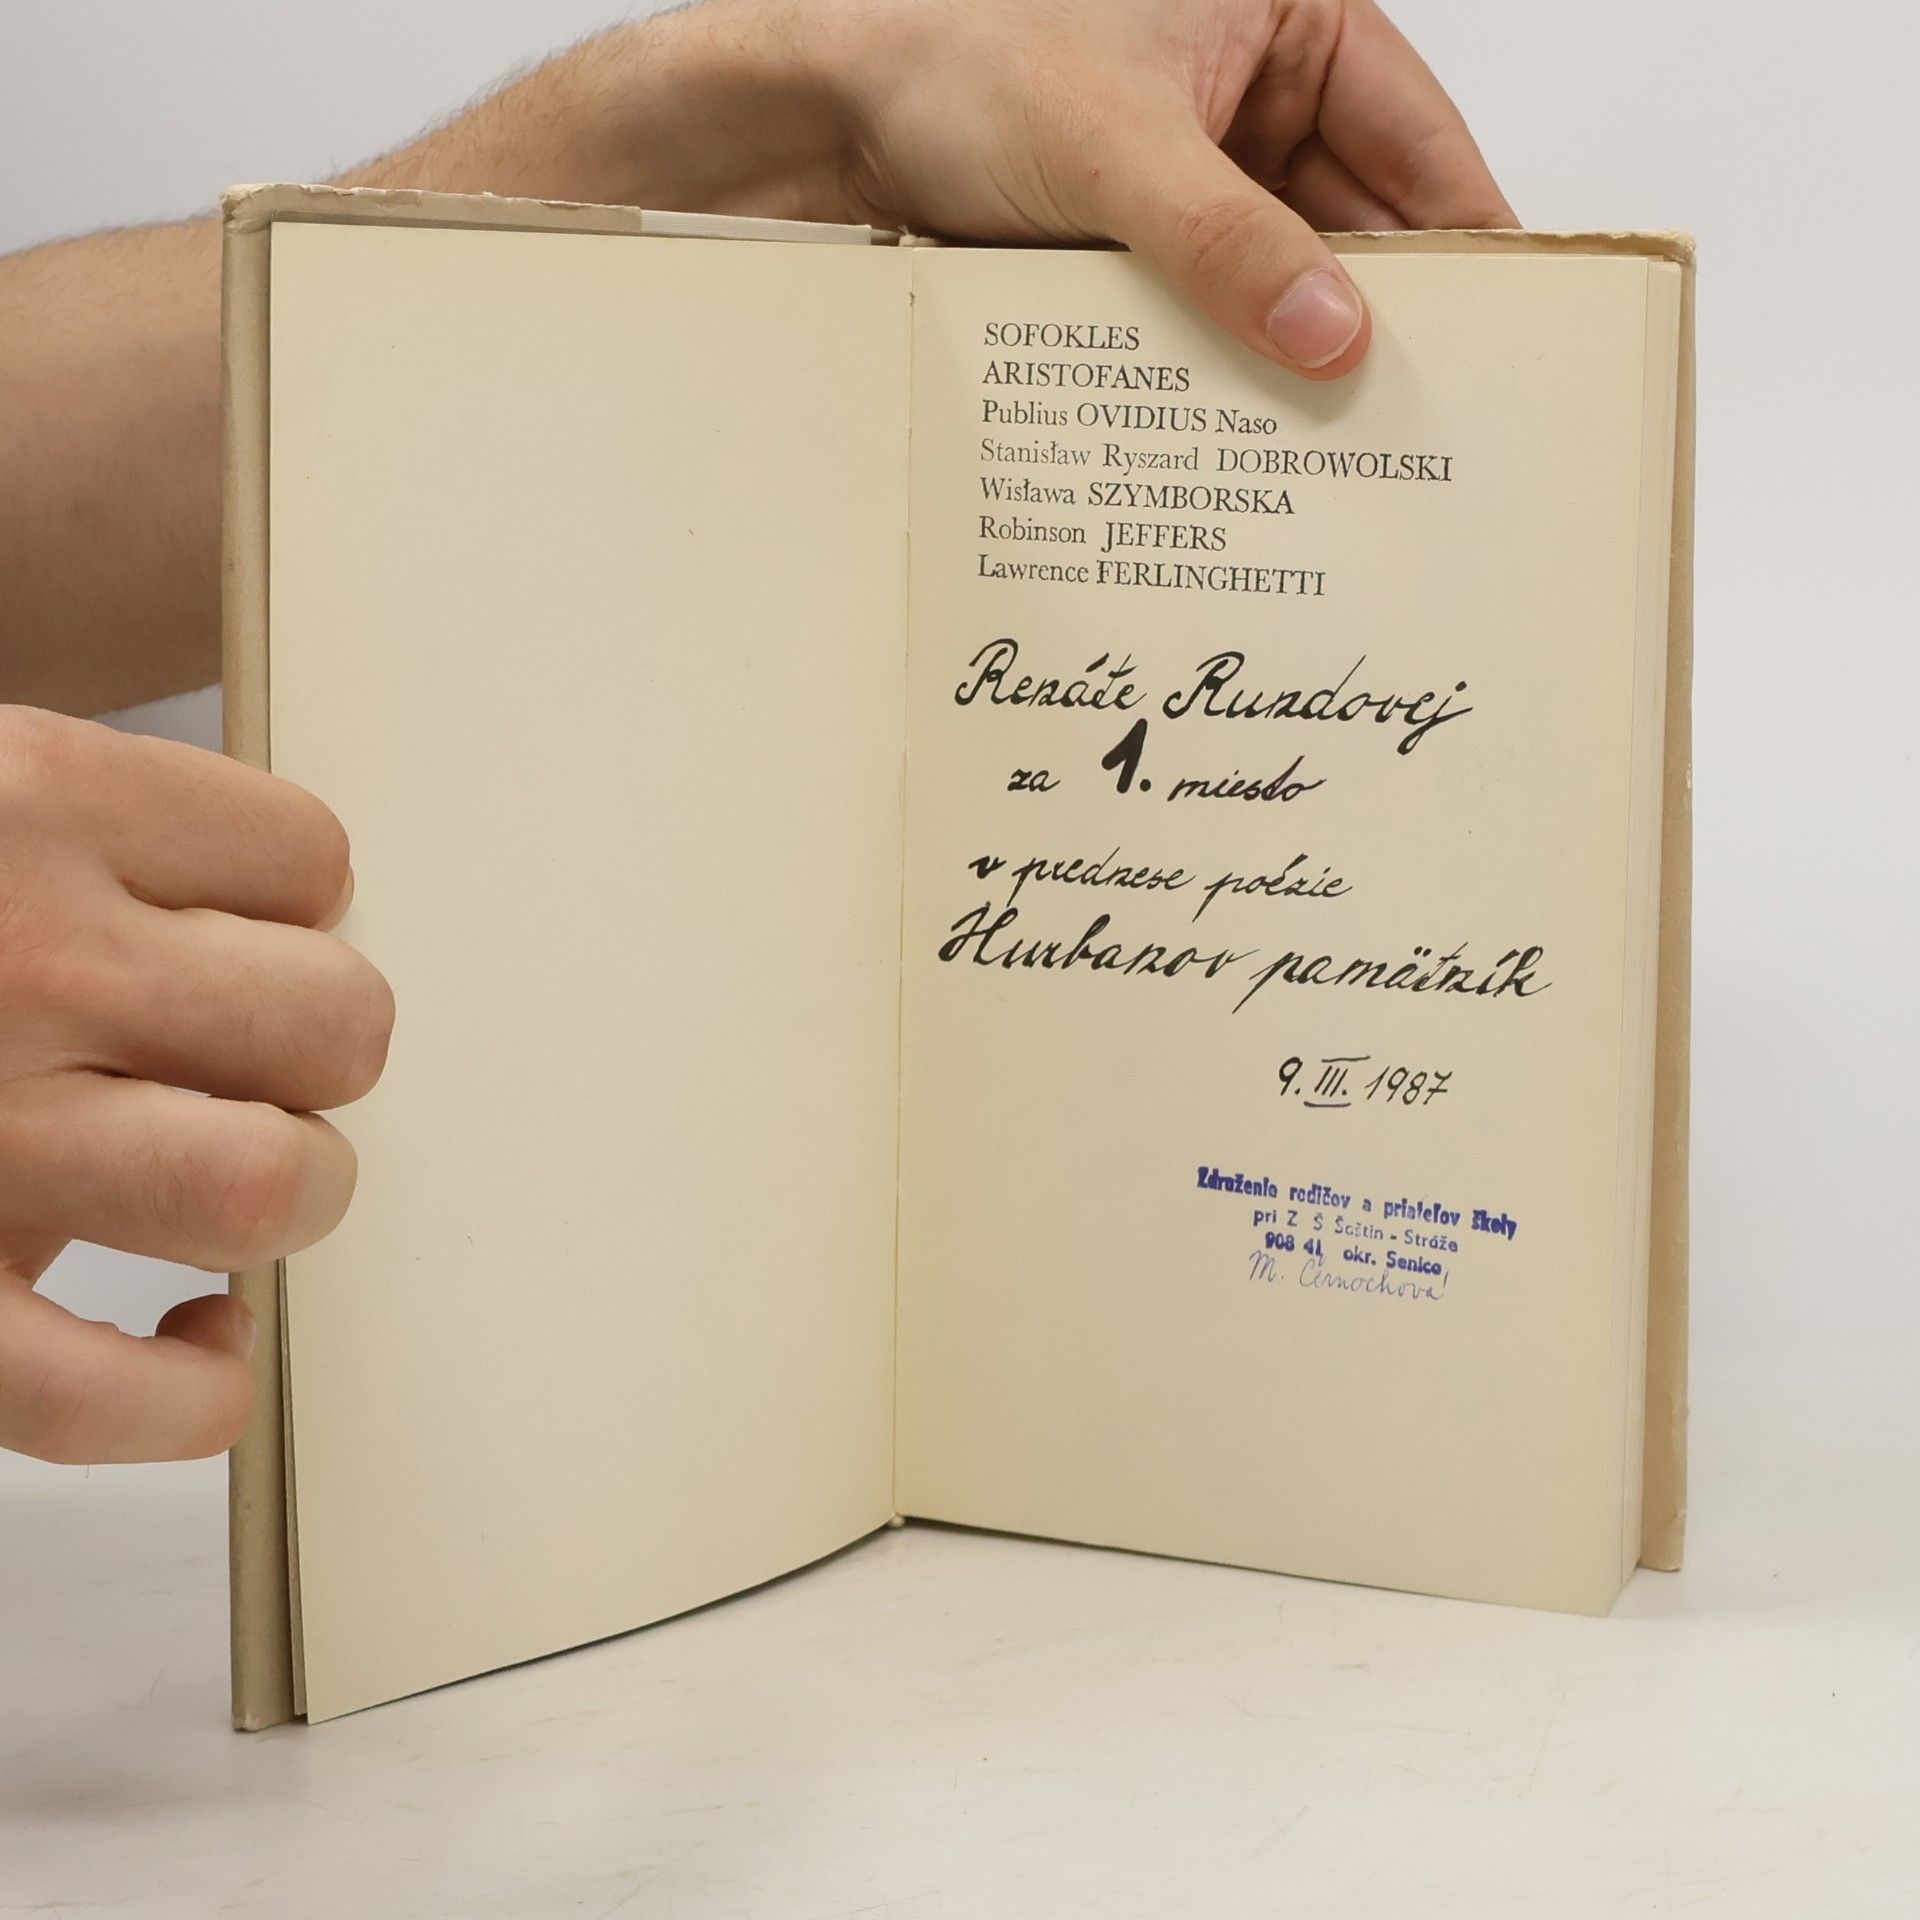 SOFOKLES
ARISTOFANES
Publius OVIDIUS Naso
Stanisław Ryszard DOBROWOLSKI
Wisława SZYMBORSKA
Robinson JEFFERS
Lawrence FERLINGHETTI
Renáte Rundovej
za 1. miesto
v prednese poézie
Hurbanov pamätník
9. III. 1987
Združenie rodičov a priateľov školy
pri Z Š Šaštín - Stráže
908 41, okr. Senica
M. Černochová